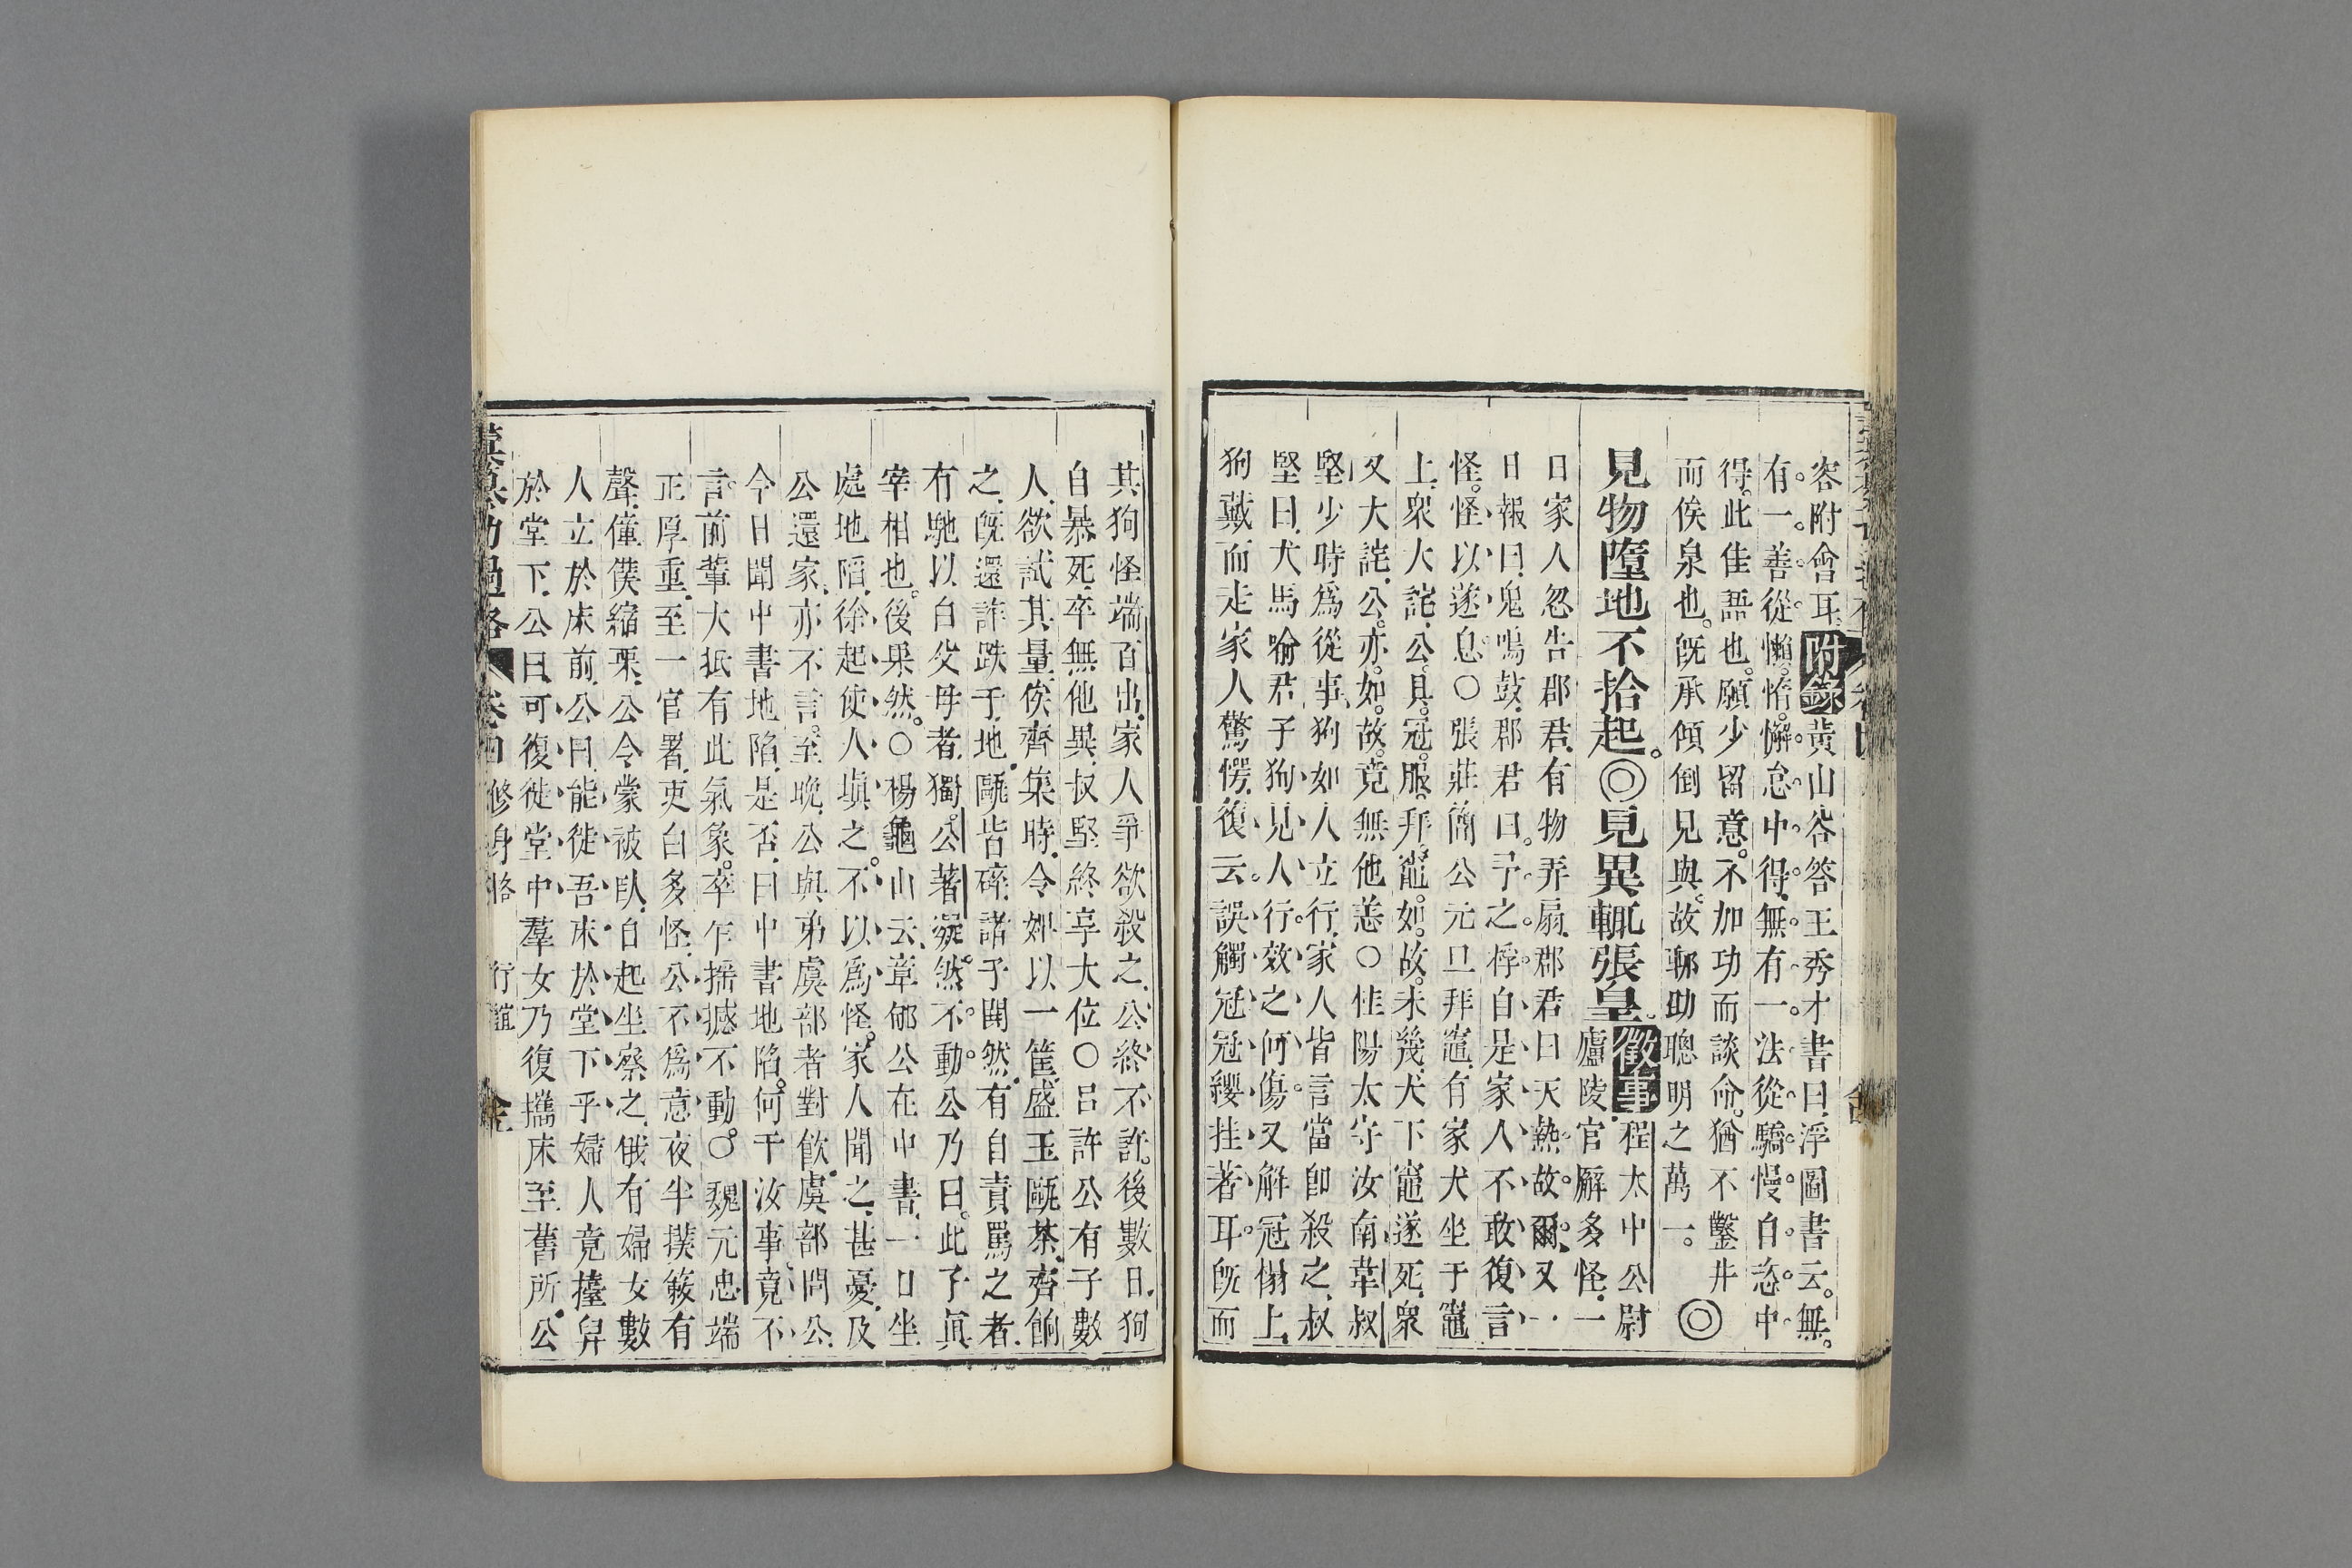 容附會耳附錄黃山谷答王秀才書曰浮圖書云無
有一善從懶惰懈怠中得無有一法從驕慢自恣中
得此佳語也願少留意不加功而談命猶不鑿井
而俟泉也旣承傾倒見與故聊助聰明之萬一◎
見物墮地不拾起◎見異輒張皇徵事程太中公尉
廬陵官廨多怪一
日家人忽告郡君有物弄扇郡君曰天熱故爾又一
日報曰鬼鳴鼓郡君曰予之桴自是家人不敢復言
怪怪以遂息○張莊簡公元旦拜竈有家犬坐于竈
上衆大詫公具冠服拜竈如故未幾犬下竈遂死衆
又大詫公亦如故竟無他恙○桂陽太守汝南韋叔
堅少時爲從事狗如人立行家人皆言當卽殺之叔
堅曰犬馬喻君子狗見人行效之何傷又解冠榻上
狗戴而走家人驚愕復云誤觸冠冠纓挂著耳旣而
其狗怪端百出家人爭欲殺之公終不許後數日狗
自暴死卒無他異叔堅終享大位○呂許公有子數
人欲試其量俟齊集時令婢以一筐盛玉甌茶齊餉
之旣還詐跌于地甌皆碎諸子閧然有自責罵之者
有馳以白父母者獨公著凝然不動公乃曰此子眞
宰相也後果然○楊龜山云章郇公在中書一日坐
處地陷徐起使人塡之不以爲怪家人聞之甚憂及
公還家亦不言至晚公與弟虞部者對飲虞部問公
今日聞中書地陷是否曰中書地陷何干汝事竟不
言前輩大抵有此氣象卒乍搖撼不動○魏元忠端
正厚重至一官署吏白多怪公不爲意夜半撲簌有
聲僮僕縮栗公令蒙被臥自起坐察之俄有婦女數
人立於床前公曰能徙吾床於堂下乎婦人竟擡舁
於堂下公曰可復徙堂中羣女乃復擕床至舊所公
彙纂功過格 卷四 修身格 行誼